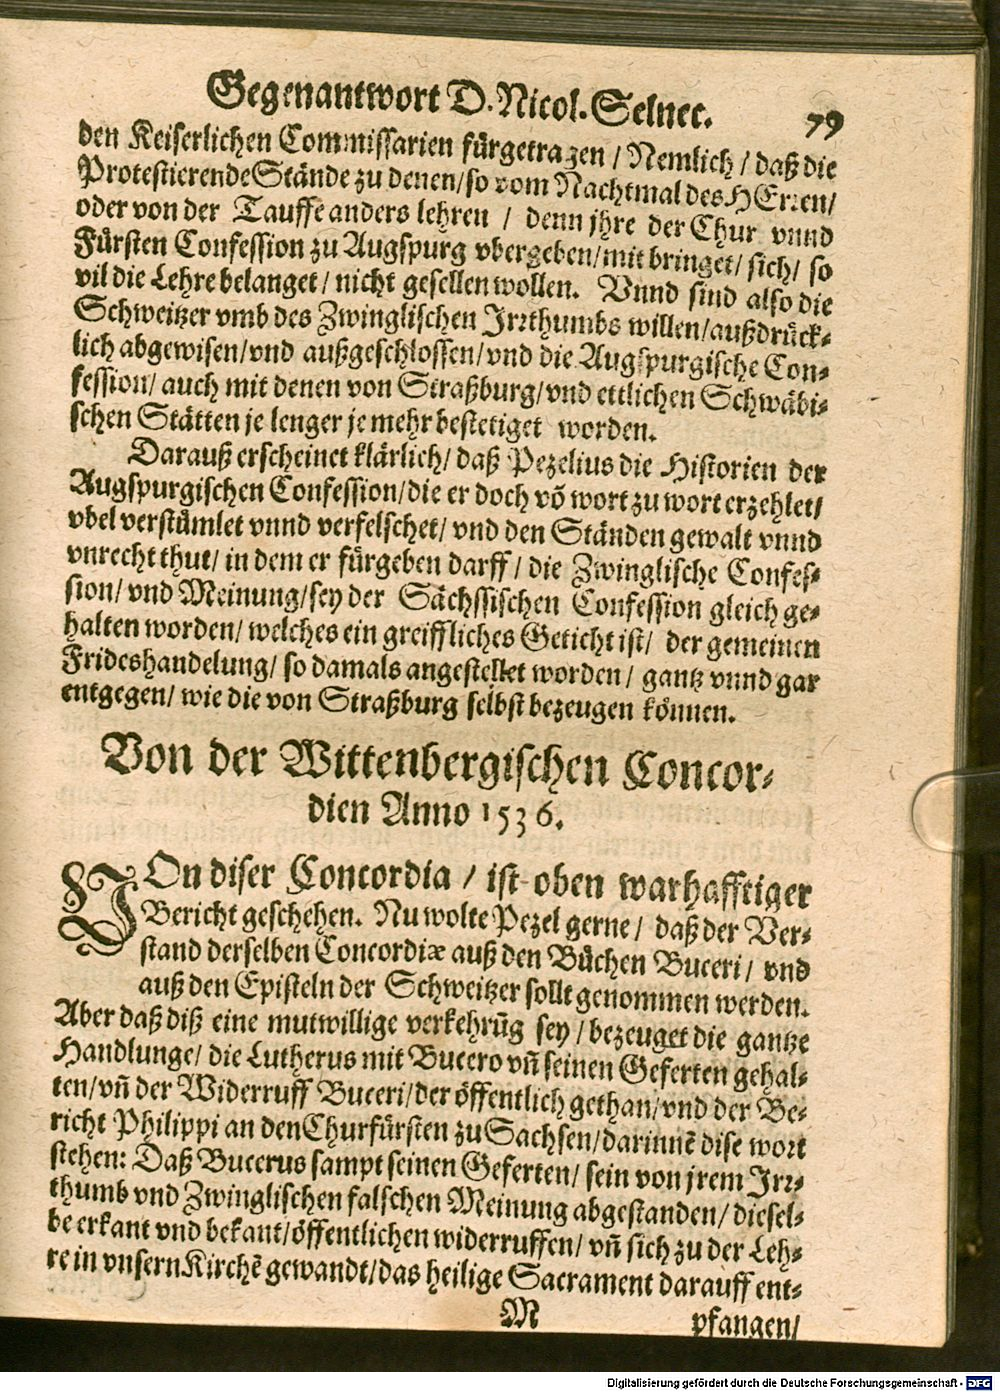 Gegenantwort D. Nicol. Selnec. 79
den Keiserlichen Commissarien fürgetragen / Nemlich / daß die
Protestierende Stände zu denen / so vom Nachtmal des HErren /
oder von der Tauffe anders lehren / denn jhre der Chur vnnd
Fürsten Confession zu Augspurg vbergeben / mit bringet / sich / so
vil die Lehre belanget / nicht gesellen wollen. Vnnd sind also die
Schweitzer vmb des Zwinglischen Irrthumbs willen / außdrück⸗
lich abgewisen / vnd außgeschlossen / vnd die Augspurgische Con⸗
fession / auch mit denen von Straßburg / vnd ettlichen Schwäbi⸗
schen Stätten je lenger je mehr bestetiget worden.
Darauß erscheinet klärlich / daß Pezelius die Historien der
Augspurgischen Confession / die er doch võ wort zu wort erzehlet /
vbel verstümlet vnnd verfelschet / vnd den Ständen gewalt vnnd
vnrecht thut / in dem er fürgeben darff / die Zwinglische Confes⸗
sion / vnd Meinung / sey der Sächssischen Confession gleich ge⸗
halten worden / welches ein greiffliches Geticht ist / der gemeinen
Frideshandelung / so damals angestellet worden / gantz vnnd gar
entgegen / wie die von Straßburg selbst bezeugen können.
Von der Wittenbergischen Concor⸗
dien Anno 1536.
VOn diser Concordia / ist oben warhafftiger
Bericht geschehen. Nu wolte Pezel gerne / daß der Ver⸗
stand derselben Concordiæ auß den Büchen Buceri / vnd
auß den Episteln der Schweitzer sollt genommen werden.
Aber daß diß eine mutwillige verkehrũg sey / bezeuget die gantze
Handlunge / die Lutherus mit Bucero vñ seinen Geferten gehal⸗
ten / vñ der Widerruff Buceri / der öffentlich gethan / vnd der Be⸗
richt Philippi an den Churfürsten zu Sachsen / darinnẽ dise wort
stehen: Daß Bucerus sampt seinen Geferten / sein von jrem Irr⸗
thumb vnd Zwinglischen falschen Meinung abgestanden / diesel⸗
be erkant vnd bekant / öffentlichen widerruffen / vñ sich zu der Leh⸗
re in vnsern Kirchẽ gewandt / das heilige Sacrament darauff ent⸗
M pfangen /
Digitalisierung gefördert durch die Deutsche Forschungsgemeinschaft - DFG